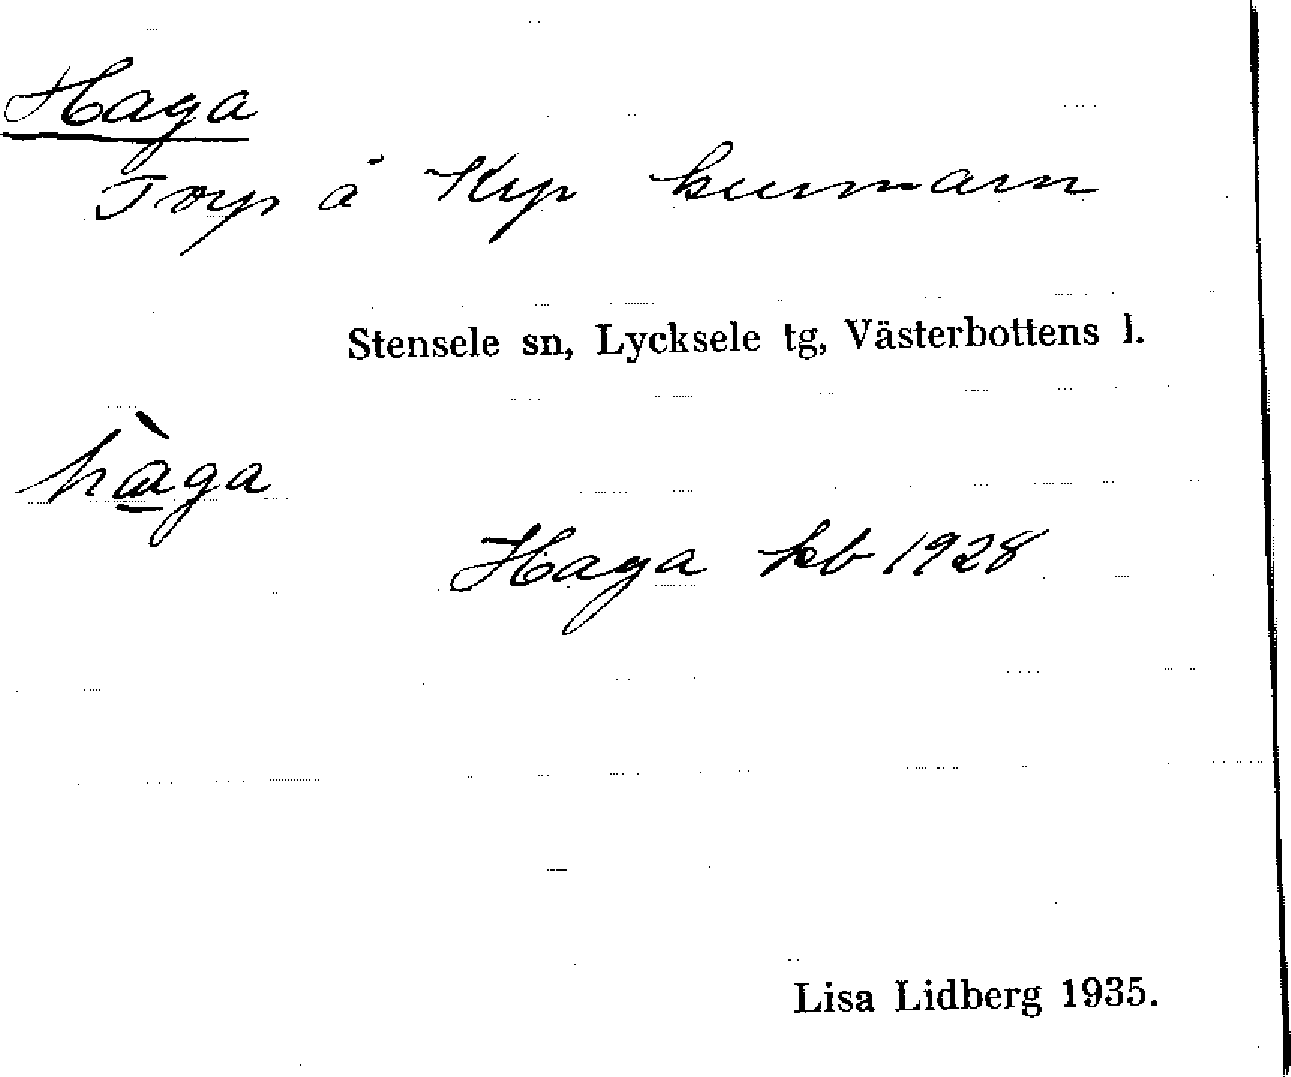 Haga
Torp å Krp kusmarn
Stensele sn, Lycksele tg, Västerbottens l.
hàga
Haga kb 1928
Lisa Lidberg 1935.